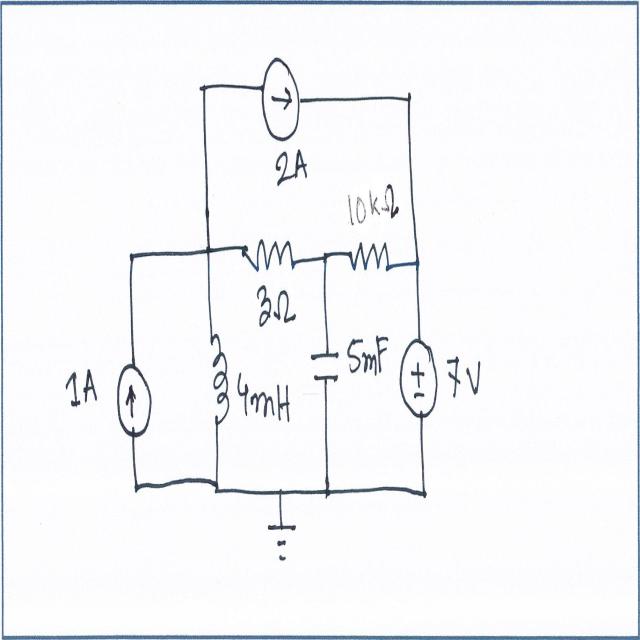 2A
10kΩ
3Ω
1A
4mH
5mF
7V